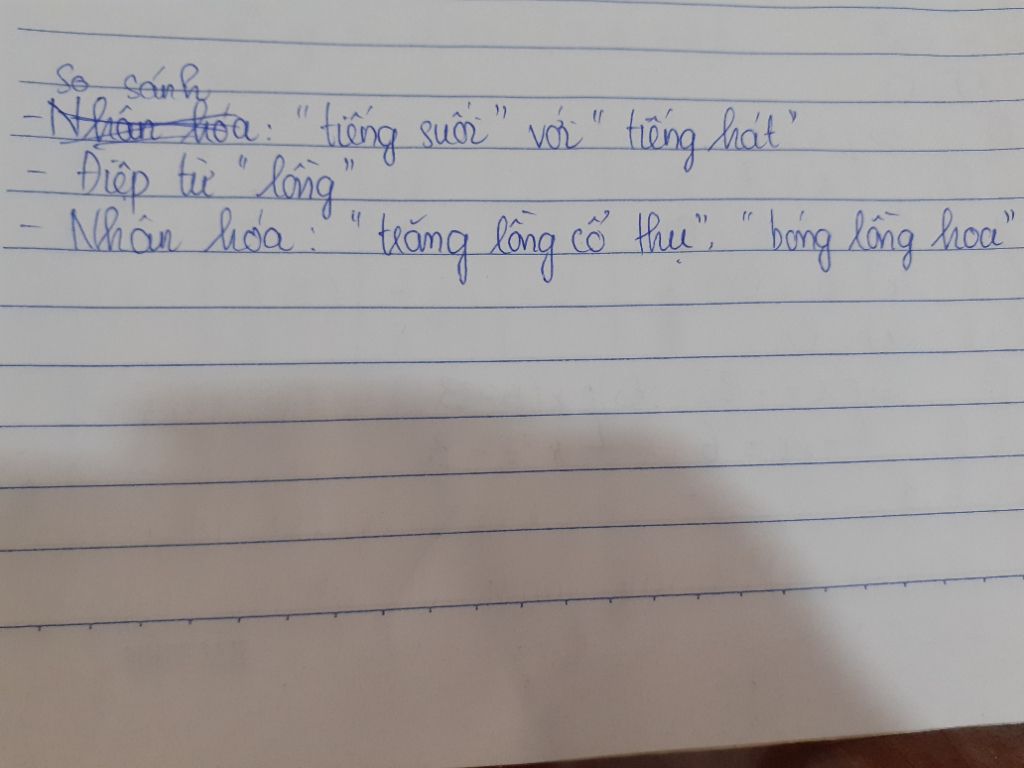 So sánh
- Nhân hóa: "tiếng suối" với "tiếng hát"
- Điệp từ "lồng"
- Nhân hóa: "trăng lồng cổ thụ", "bóng lồng hoa"